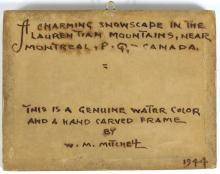 A CHARMING SNOWSCAPE IN THE
LAURENTIAN MOUNTAINS, NEAR
MONTREAL, P.Q., - CANADA.
=
THIS IS A GENUINE WATER COLOR
AND A HAND CARVED FRAME
BY
W. M. MITCHELL
1944